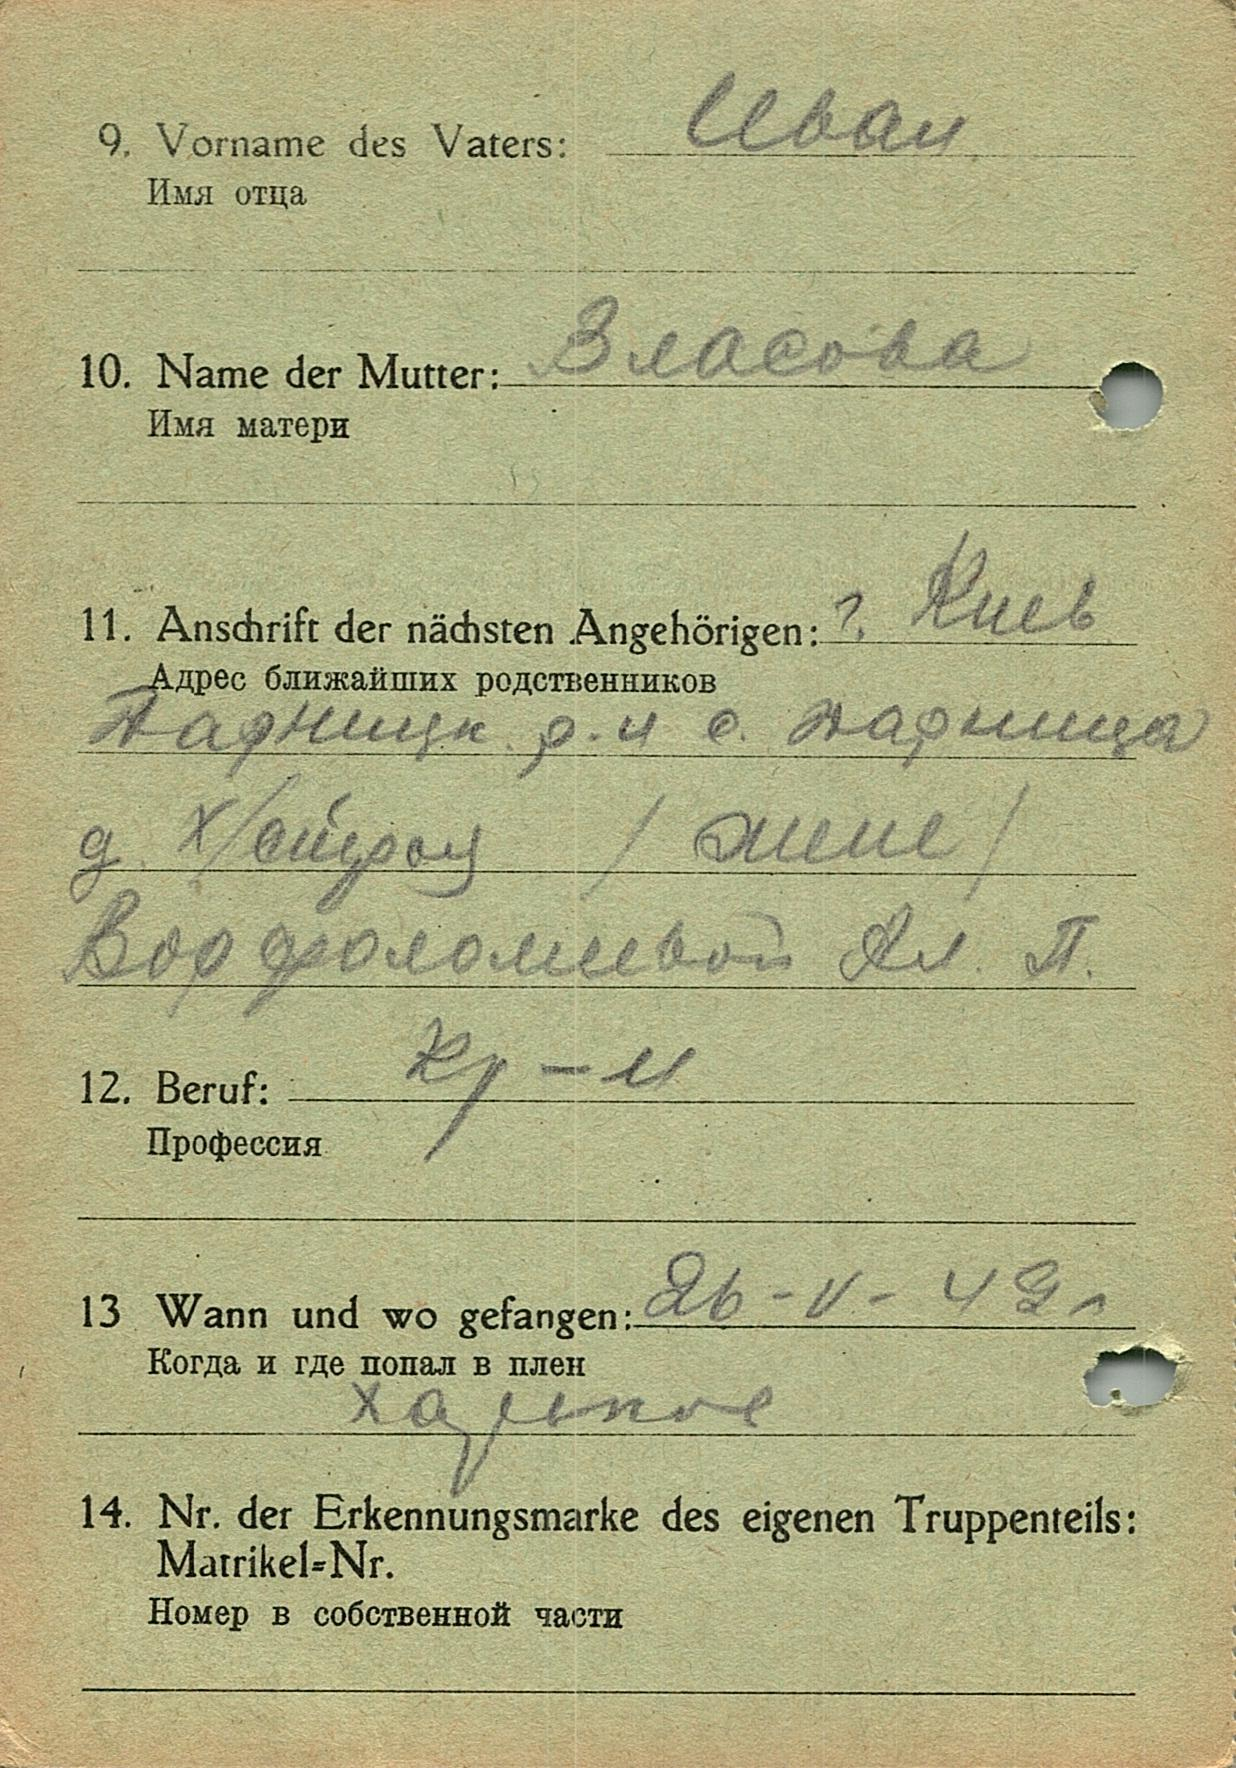 9. Vorname des Vaters: Иван
Имя отца
10. Name der Mutter: Власова
Имя матери
11. Anschrift der nächsten Angehörigen: г. Киев
Адрес ближайших родственников
Дарницк. р-н с. Дарница
д. /жене/
Ворфоломеевой Ал. П.
12. Beruf: Кр-н
Профессия
13 Wann und wo gefangen: 26-V-42 г
Когда и где попал в плен
Харьков
14. Nr. der Erkennungsmarke des eigenen Truppenteils:
Matrikel=Nr.
Номер в собственной части